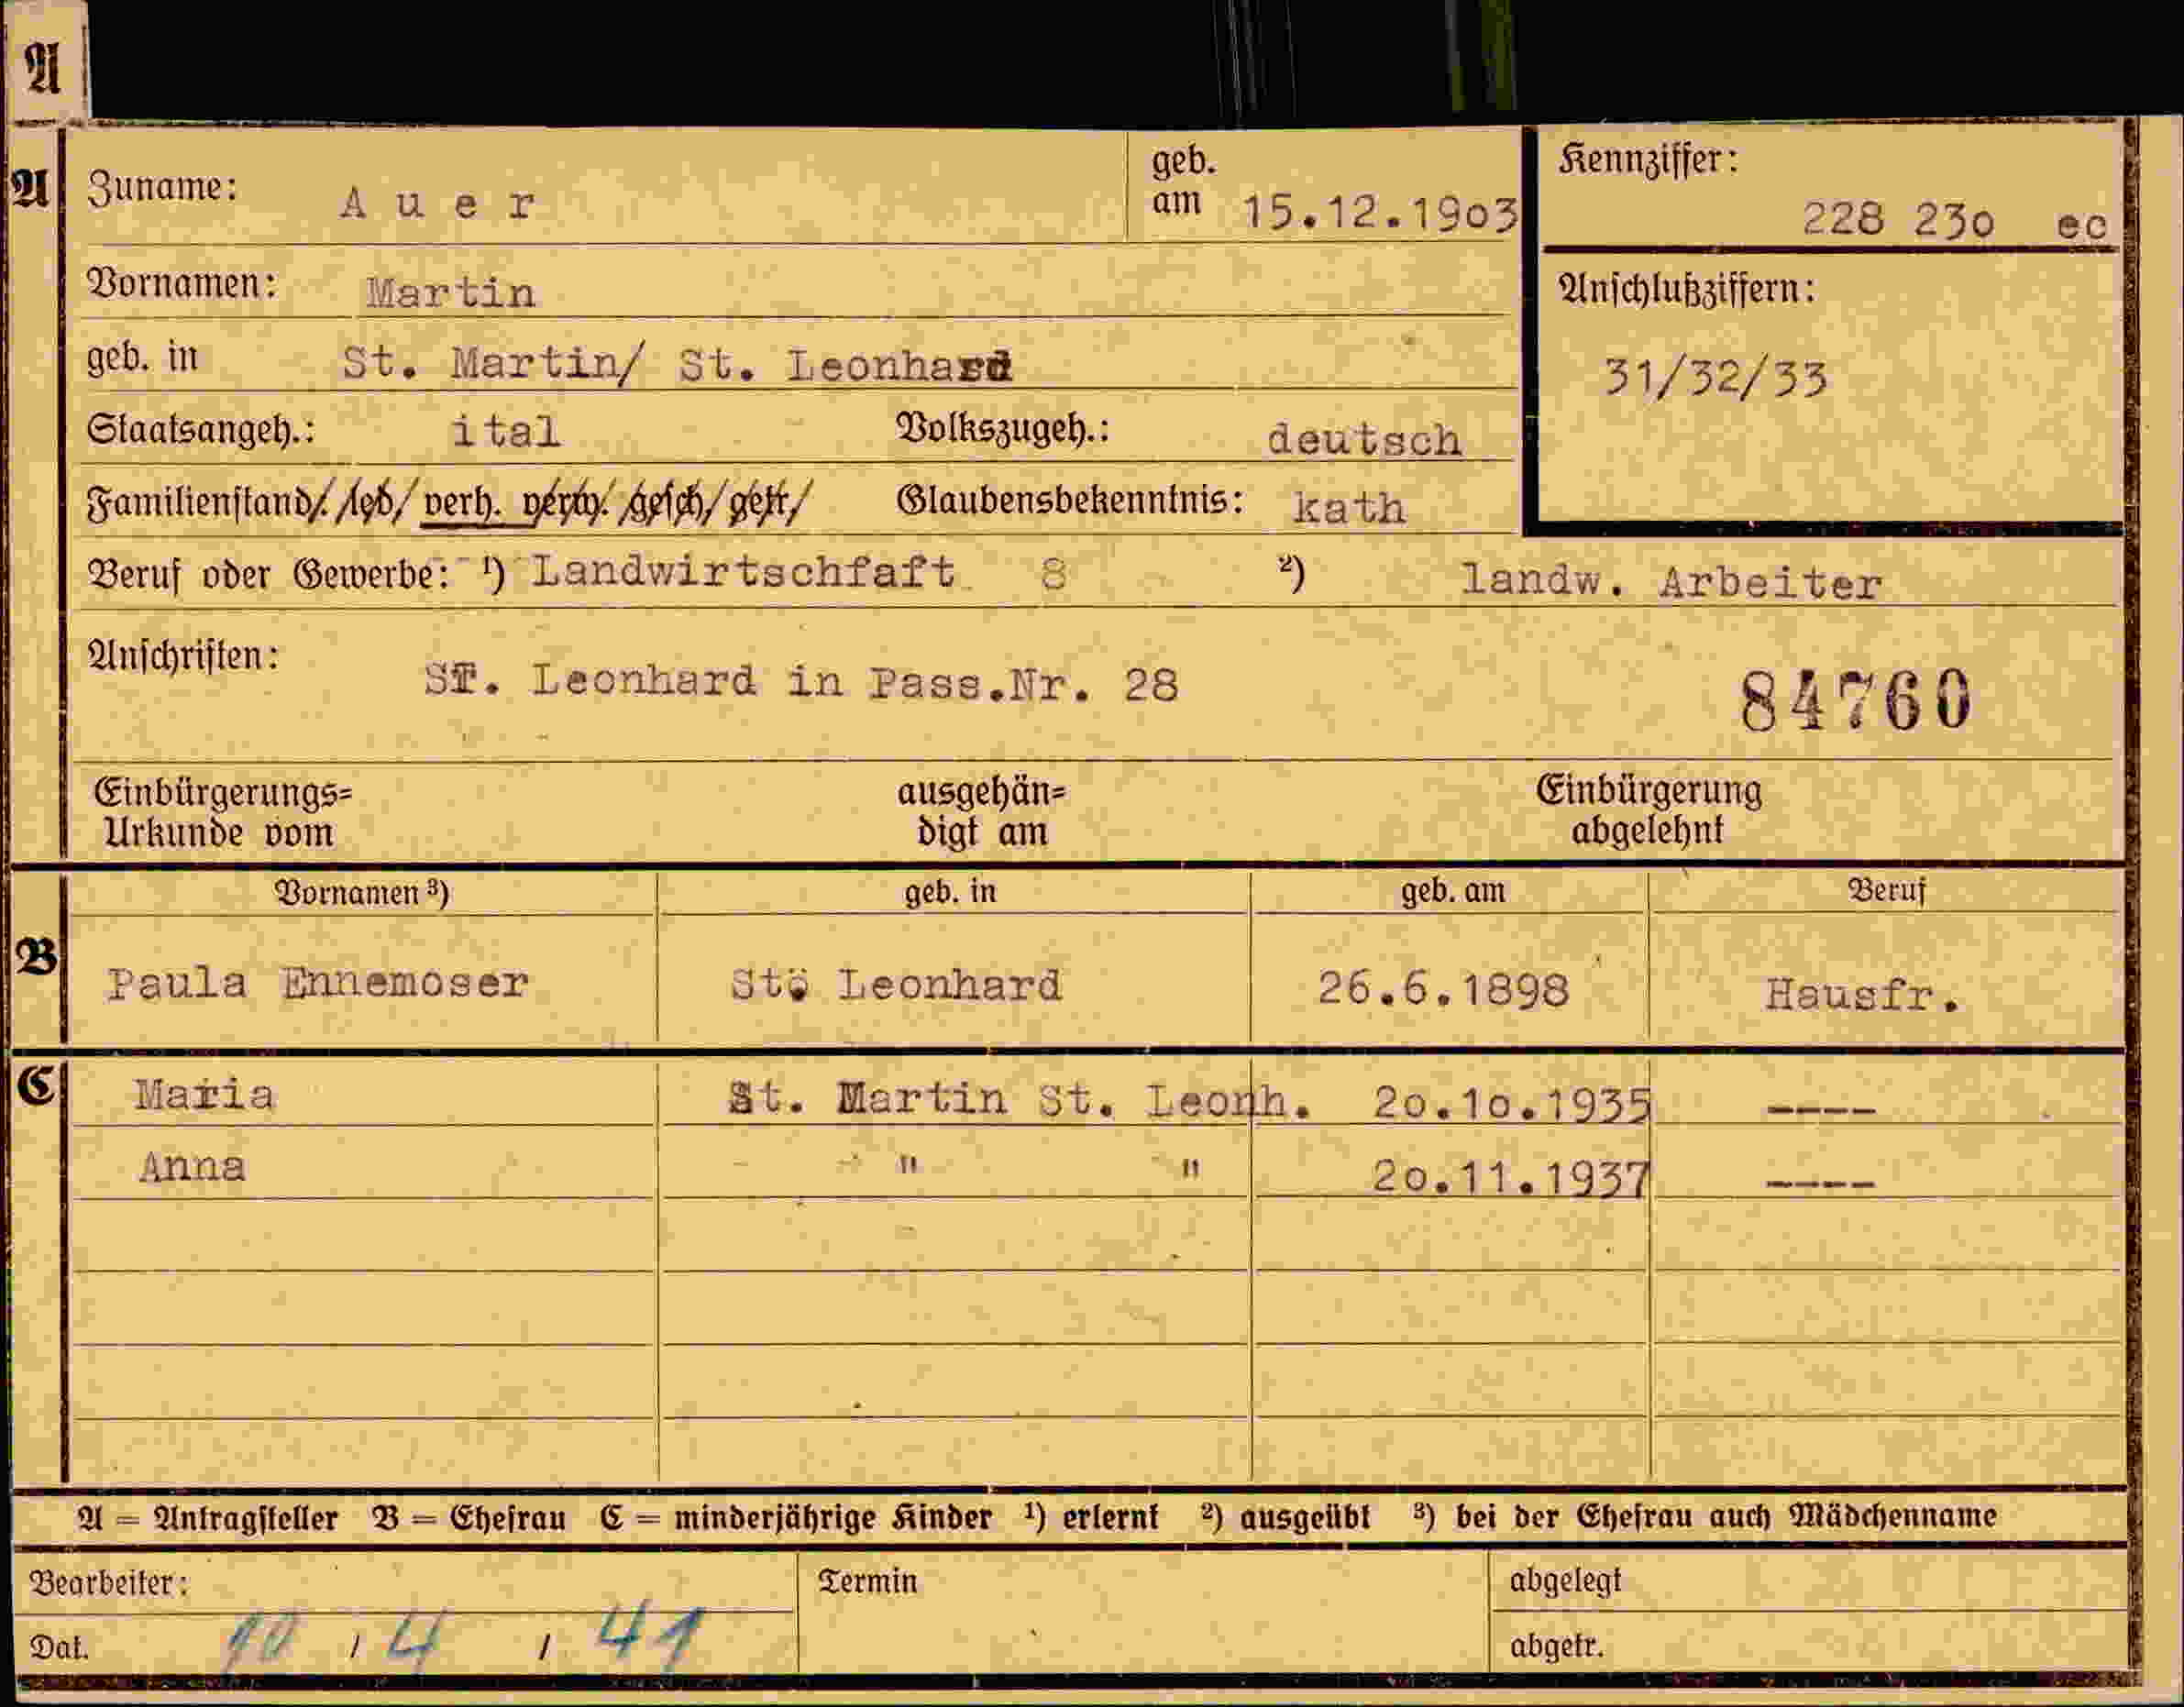 A
A Zuname: Auer geb. am 15.12.1903 Kennziffer: 228 230 ec
Vornamen: Martin Anschlußziffern:
geb. in St. Martin/ St. Leonhard 31/32/33
Staatsangeh.: ital Volkszugeh.: deutsch
Familienstand: led. verh. verw. gesch. getr. Glaubensbekenntnis: kath
Beruf oder Gewerbe: ¹) Landwirtschfaft 8 ²) landw. Arbeiter
Anschriften: ST. Leonhard in Pass.Nr. 28 84760
Einbürgerungs= ausgehän= Einbürgerung
Urkunde vom digt am abgelehnt
Vornamen ³) geb. in geb. am Beruf
B Paula Ennemoser St. Leonhard 26.6.1898 Hausfr.
C Maria St. Martin St. Leonh. 20.10.1935 ----
Anna " " 20.11.1937 ----
A = Antragsteller B = Ehefrau C = minderjährige Kinder ¹) erlernt ²) ausgeübt ³) bei der Ehefrau auch Mädchenname
Bearbeiter: Termin abgelegt
Dat. 10 / 4 / 41 abgetr.